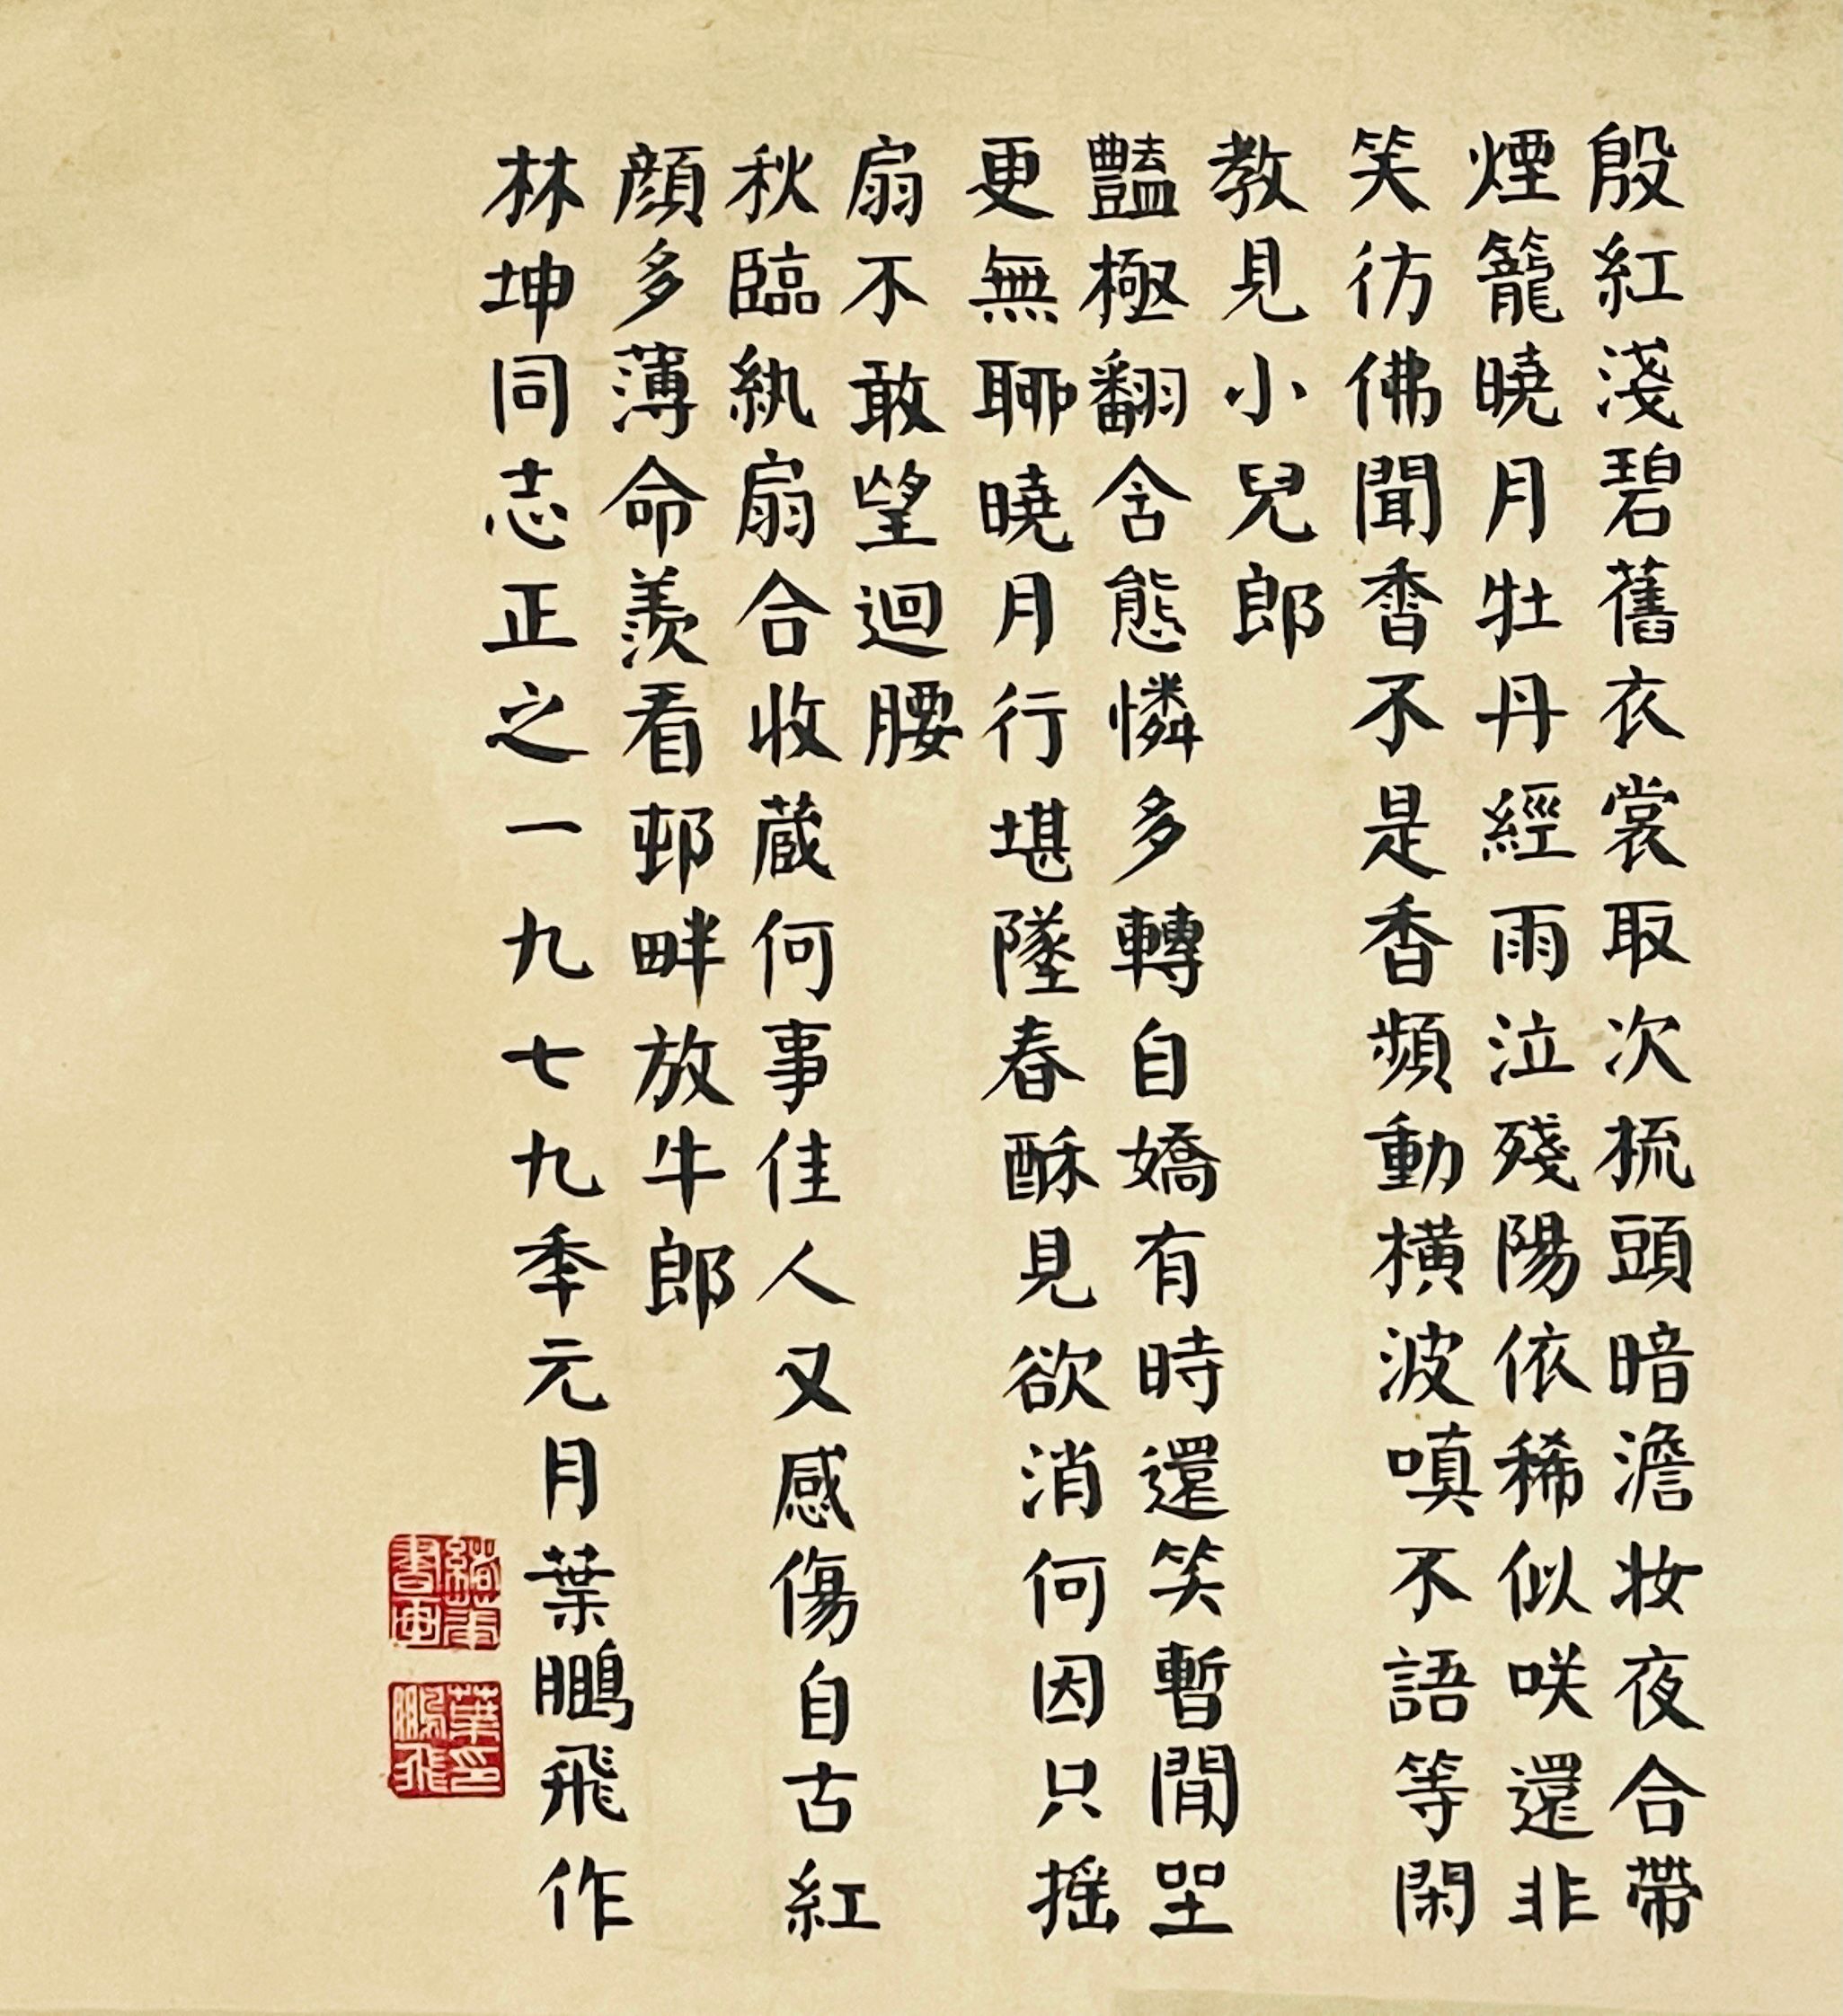 殷紅淺碧舊衣裳取次梳頭暗澹妝夜合帶
煙籠曉月牡丹經雨泣殘陽依稀似咲還非
笑彷佛聞香不是香頻動橫波嗔不語等閑
教見小兒郎
豔極翻含態憐多轉自嬌有時還笑暫閒坐
更無聊曉月行堪墜春酥見欲消何因只摇
扇不敢望迴腰
秋臨紈扇合收蔵何事佳人又感傷自古紅
顔多薄命羨看邨畔放牛郎
林坤同志正之一九七九季元月葉鵬飛作
葉鵬飛印